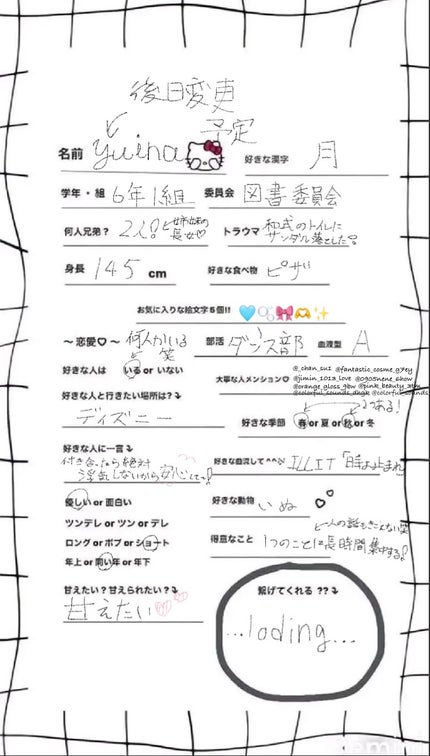 後日変更
予定
名前 yuina 好きな漢字 月
学年・組 6年1組 委員会 図書委員会
何人兄弟? 2人! 長女 トラウマ 和式のトイレに
サンダル落とした
身長 145 cm 好きな食べ物 ピザ
お気に入りな絵文字5個!! 🩵🫧🎀🫶✨
〜恋愛♡〜 何人かいる 笑 部活 ダンス部 血液型 A
好きな人は いる or いない 大事な人メンション♡
@_chan_su1 @fantastic_cosme_g7ey
@jimin_1013_love @0905nene_show
@orange_gloss_9bw @pink_beauty_3tm
@colorful_sounds_dhgk @colorful_sounds
好きな人と行きたい場所は?⤵
ディズニー 好きな季節 春 or 夏 or 秋 or 冬
2つある!
好きな人に一言⤵ 好きな曲流して^^ ILLIT 「時よ止まれ」
付き合ったら絶対
浮気しないから安心してっ!
優しい or 面白い 好きな動物 いぬ
ツンデレ or ツン or デレ
ロング or ボブ or ショート 得意なこと 1つのことに長時間集中する!
人の話もきこえない笑
年上 or 同い年 or 年下
甘えたい?甘えられたい?⤵ 繋げてくれる ??⤵
甘えたい
...loding...